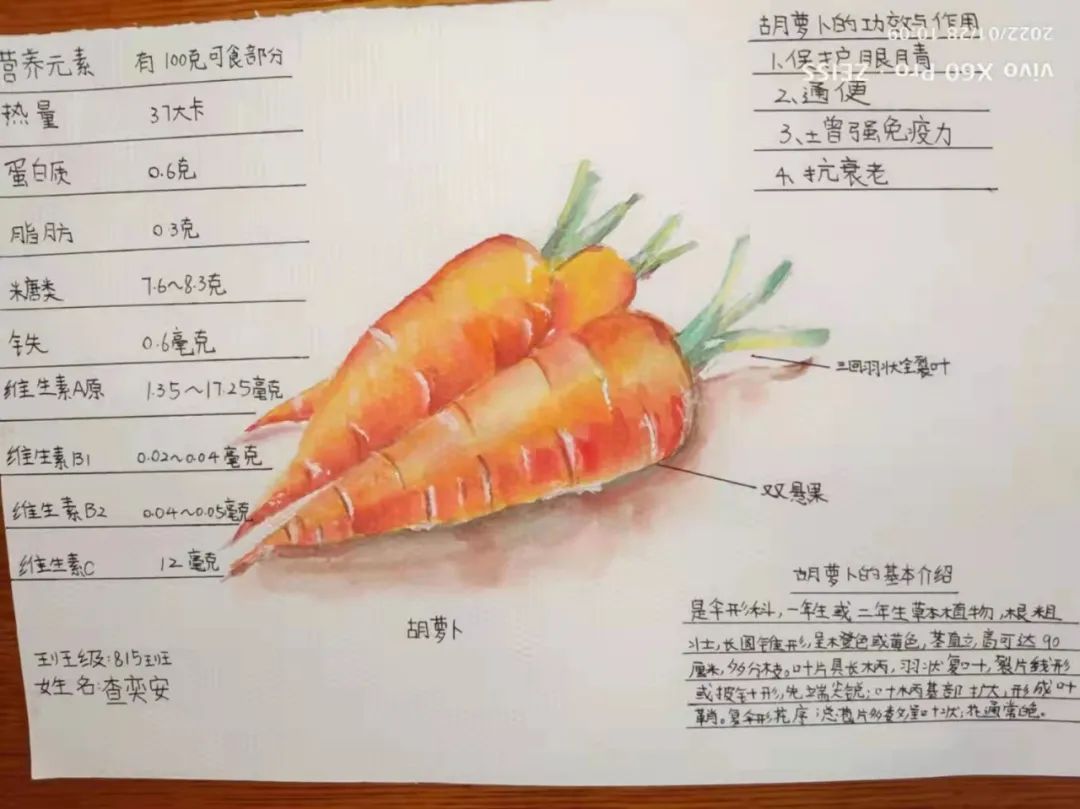 营养元素 有100克可食部分
热量 37大卡
蛋白质 0.6克
脂肪 0.3克
糖类 7.6~8.3克
铁 0.6毫克
维生素A原 1.35~17.25毫克
维生素B1 0.02~0.04毫克
维生素B2 0.04~0.05毫克
维生素C 12毫克
班级:815班
姓名:查奕安
胡萝卜
胡萝卜的功效与作用
1、保护眼睛
2、通便
3、增强免疫力
4、抗衰老
三回羽状全裂叶
双悬果
胡萝卜的基本介绍
是伞形科,一年生或二年生草本植物,根粗
壮,长圆锥形,呈橙色或黄色,茎直立,高可达90
厘米,多分枝。叶片具长柄,羽状复叶,裂片线形
或披针形,先端尖锐;叶柄基部扩大,形成叶
鞘。复伞形花序;总苞片多数呈叶状;花通常
vivo X60 Pro · ZEISS
2022/01/28 10:09